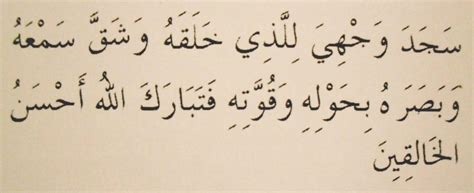 سَجَدَ وَجْهِيَ لِلَّذِي خَلَقَهُ وَشَقَّ سَمْعَهُ
وَبَصَرَهُ بِحَوْلِهِ وَقُوَّتِهِ فَتَبَارَكَ اللهُ أَحْسَنُ
الخَالِقِينَ